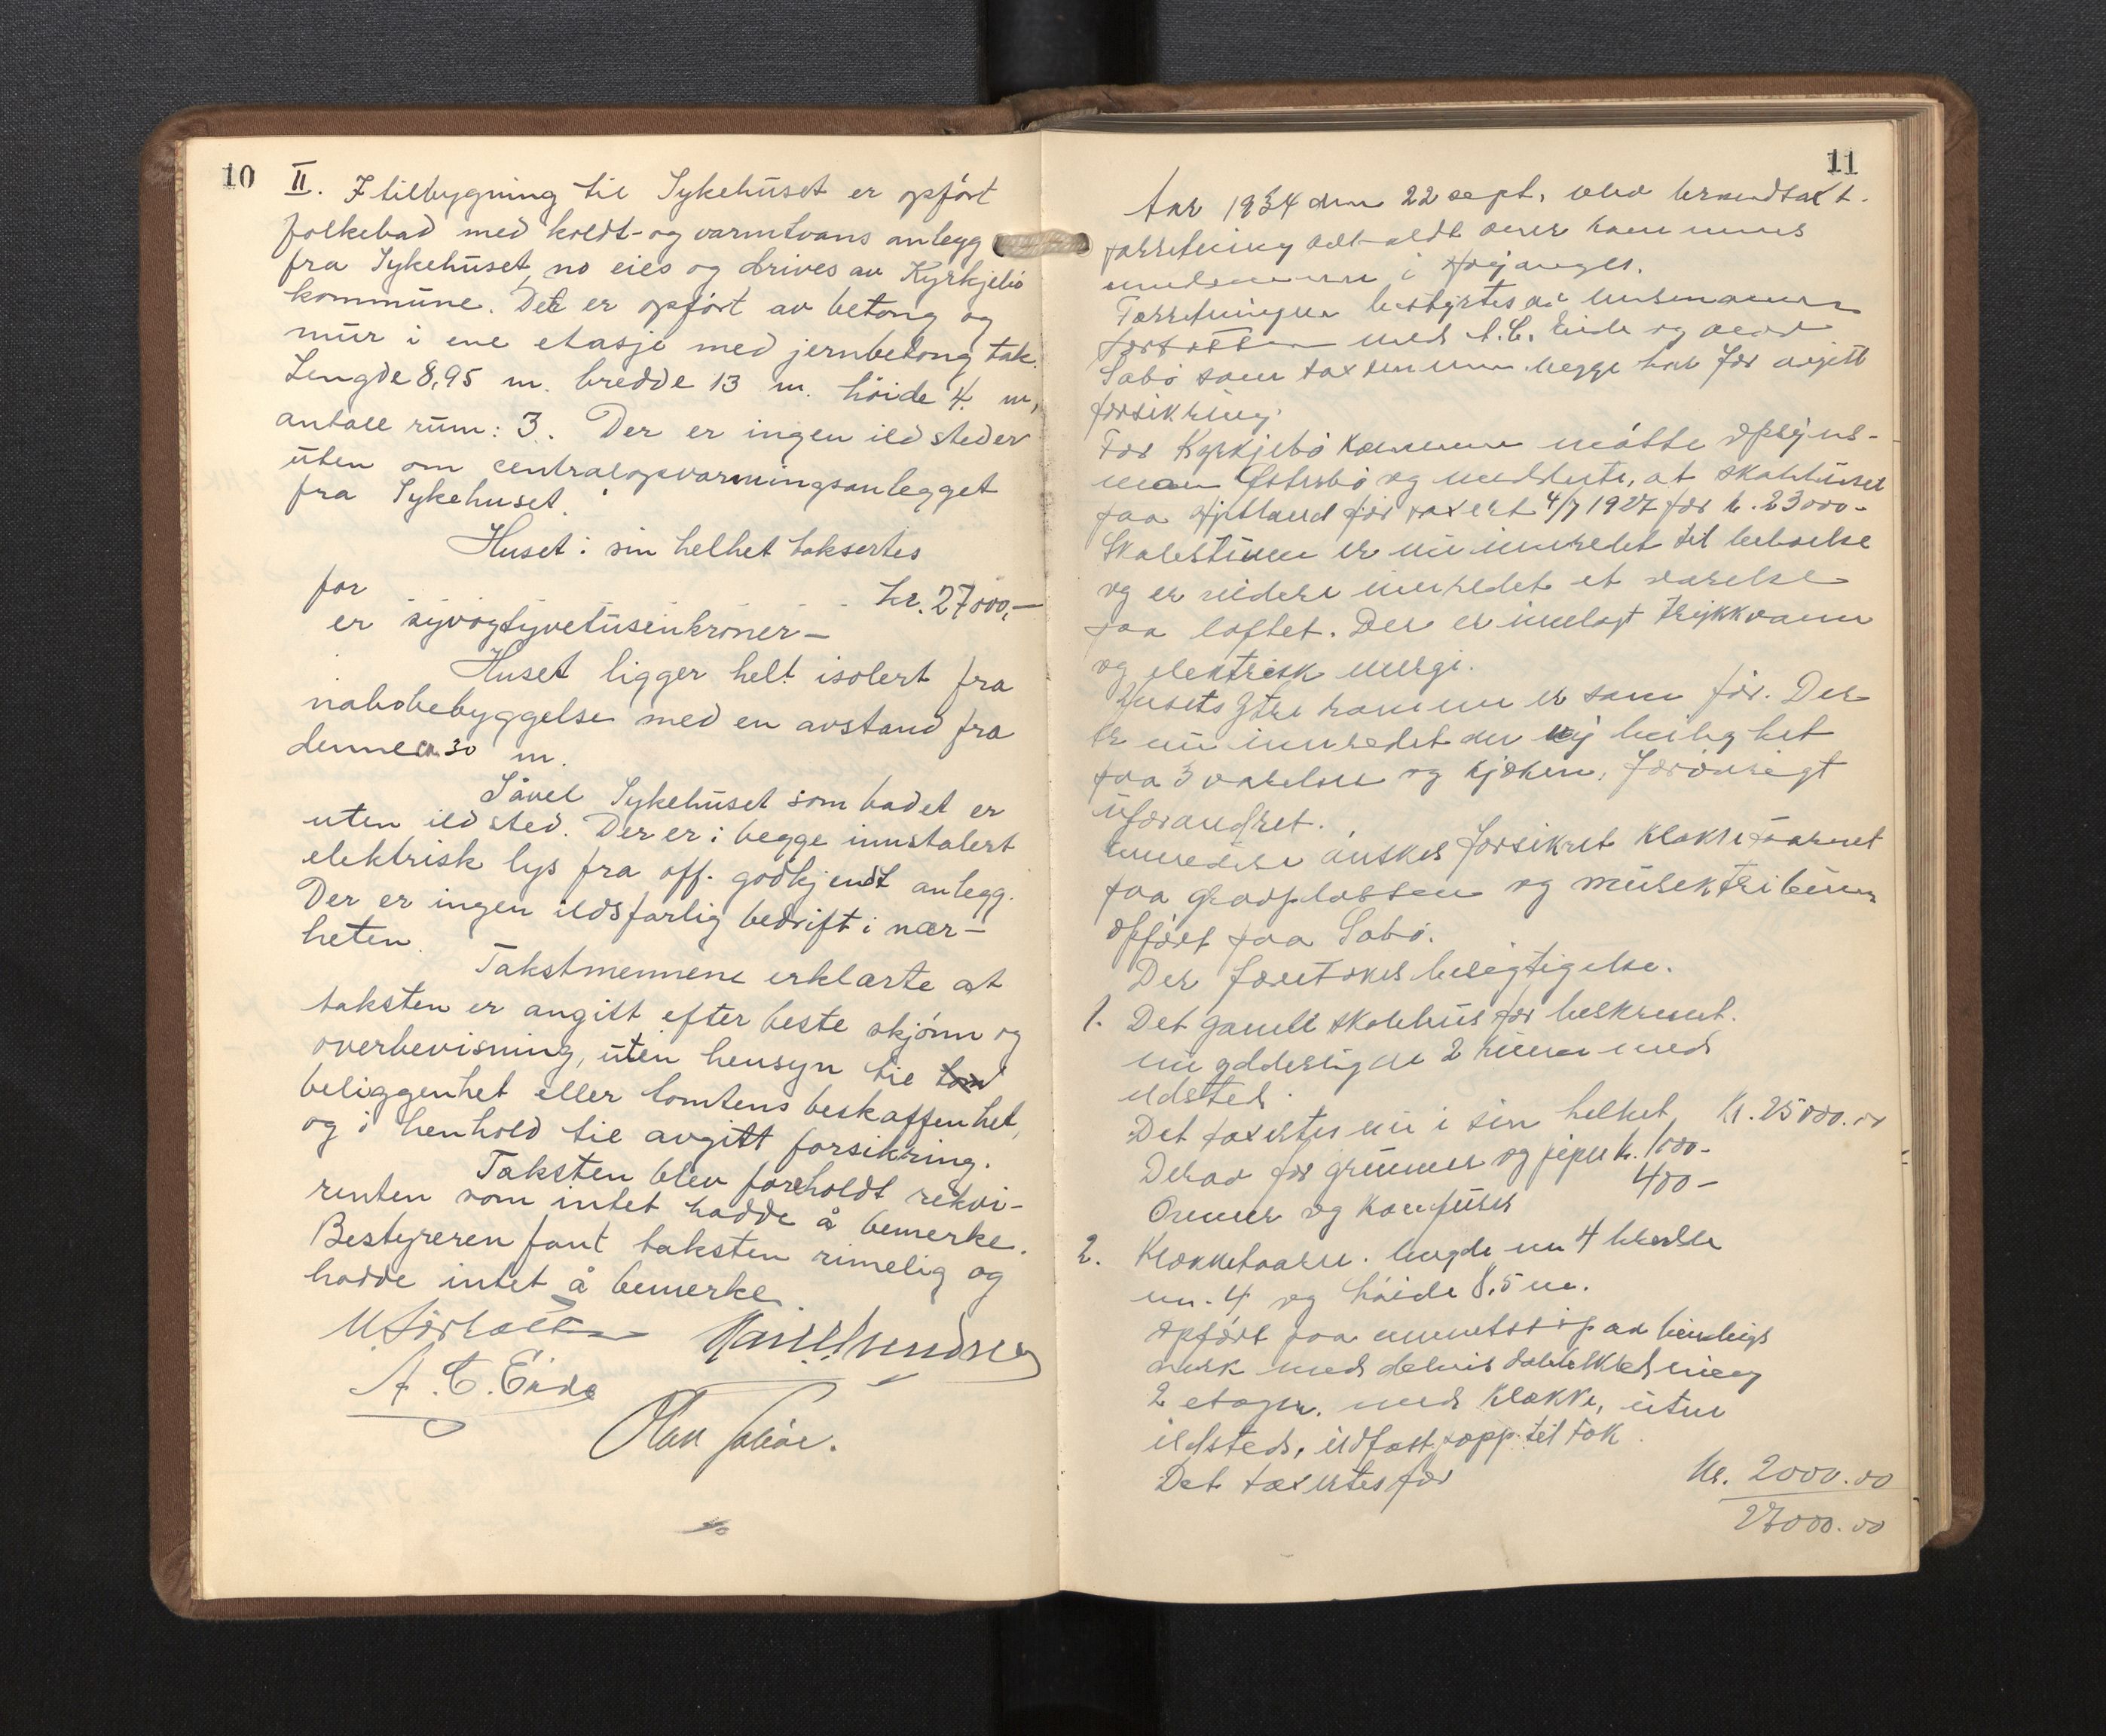 10
II. I tilbygning til Sykehuset er opført
folkebad med koldt- og varmtvans anlegg
fra Sykehuset, no eies og drives av Kyrkjebø
kommune. Det er opført av betong og
mur i ene etasje med jernbetong tak.
Lengde 8,95 m. bredde 13 m. høide 4. m,
antall rum: 3. Der er ingen ildsteder
uten om centralopvarmingsanlegget
fra Sykehuset.
Huset i sin helhet taksertes
for kr. 27000,-
er syvogtyvetusenkroner-
Huset ligger helt isolert fra
nabobebyggelse med en avstand fra
denne ca. 30 m.
Såvel Sykehuset som badet er
uten ildsted. Der er i begge innstalert
elektrisk lys fra off. godkjendt anlegg.
Der er ingen ildsfarlig bedrift i nær-
heten.
Takstmennene erklærte at
taksten er angitt efter beste skjønn og
overbevisning, uten hensyn til
beliggenhet eller tomtens beskaffenhet,
og i henhold til avgitt forsikring.
Taksten blev foreholdt rekvi-
renten som intet hadde å bemerke.
Bestyreren fant taksten rimelig og
hadde intet å bemerke.
A. C. Eide
11
Aar 1934 den 22 sept. blev branntakst-
forretning avholdt over kommunens
i Høyanger.
Forretningen bestyrtes av lensmannen
med A. C. Eide og
Sæbø som taxtmenn. begge har før avgitt
forsikring.
For Kyrkjebø kommune møtte opsyns-
man Østerbø og meddelte, at skolehuset
paa Hjetland før taxert 4/7 1927 for kr. 23000-
Skolestuen er nu innredet til beboelse
og er videre innredet et værelse
paa loftet. Der er innlagt trykkvann
og elektrisk energi.
Husets ytre ramme er som før. Der
er nu innredet en ny leilighet
paa 3 værelser og kjøken, forøvrigt
uforandret.
ønskes forsikret klokketaarnet
paa gravplassen og musiktribunen
opført paa Sæbø.
Der foretokes besigtigelse.
1. Det gamle skolehus før beskrevet.
nu ytterligere 2 rum med
ildsted.
Det taxertes nu i sin helhet Kr. 25000.00
Derav for grunmur og piper kr. 1000-
Ovner og komfurer 400-
2. Klokketaarn. lengde m 4 bredde
m. 4 og høide 8,5 m.
opført paa sementstøp av bindings
verk med delvis dobbeltkledning
2 etager. med klokke, uten
ildsted, ildfast papp til tak.
Det taxertes for Kr. 2000.00
27000.00